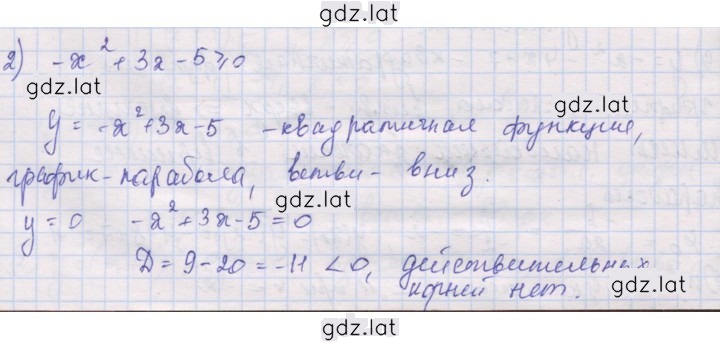 gdz.lat
2) -x² + 3x - 5 ≥ 0
gdz.lat
gdz.lat
y = -x² + 3x - 5 - квадратичная функция,
график - парабола, ветви - вниз.
gdz.lat
y = 0 -x² + 3x - 5 = 0
Д = 9 - 20 = -11 < 0, действительных
корней нет.
gdz.lat
gdz.lat